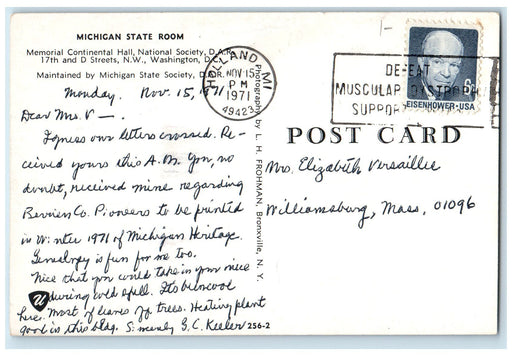 MICHIGAN STATE ROOM
Memorial Continental Hall, National Society, D.A.R.
17th and D Streets, N.W., Washington, D.C.
Maintained by Michigan State Society, D.A.R.
HOLLAND, MI
NOV 15
PM
1971
49423
DEFEAT
MUSCULAR DYSTROPHY
SUPPORT
8c
EISENHOWER·USA
Monday, Nov. 15, 1971
Dear Mrs. V—.
I guess our letters crossed. Re-
ceived yours this A.M. You, no
doubt, received mine regarding
Berrien Co. Pioneers to be printed
in Winter 1971 of Michigan Heritage.
Genealogy is fun for me too.
Nice that you could take in your mice
during cold spell. Its been cool
here. Most of leaves off trees. Heating plant
good in this bldg. Sincerely G.C. Keeler
256-2
Photograph by L. H. FROHMAN, Bronxville, N. Y.
POST CARD
Mrs. Elizabeth Versailles
Williamsburg, Mass, 01096